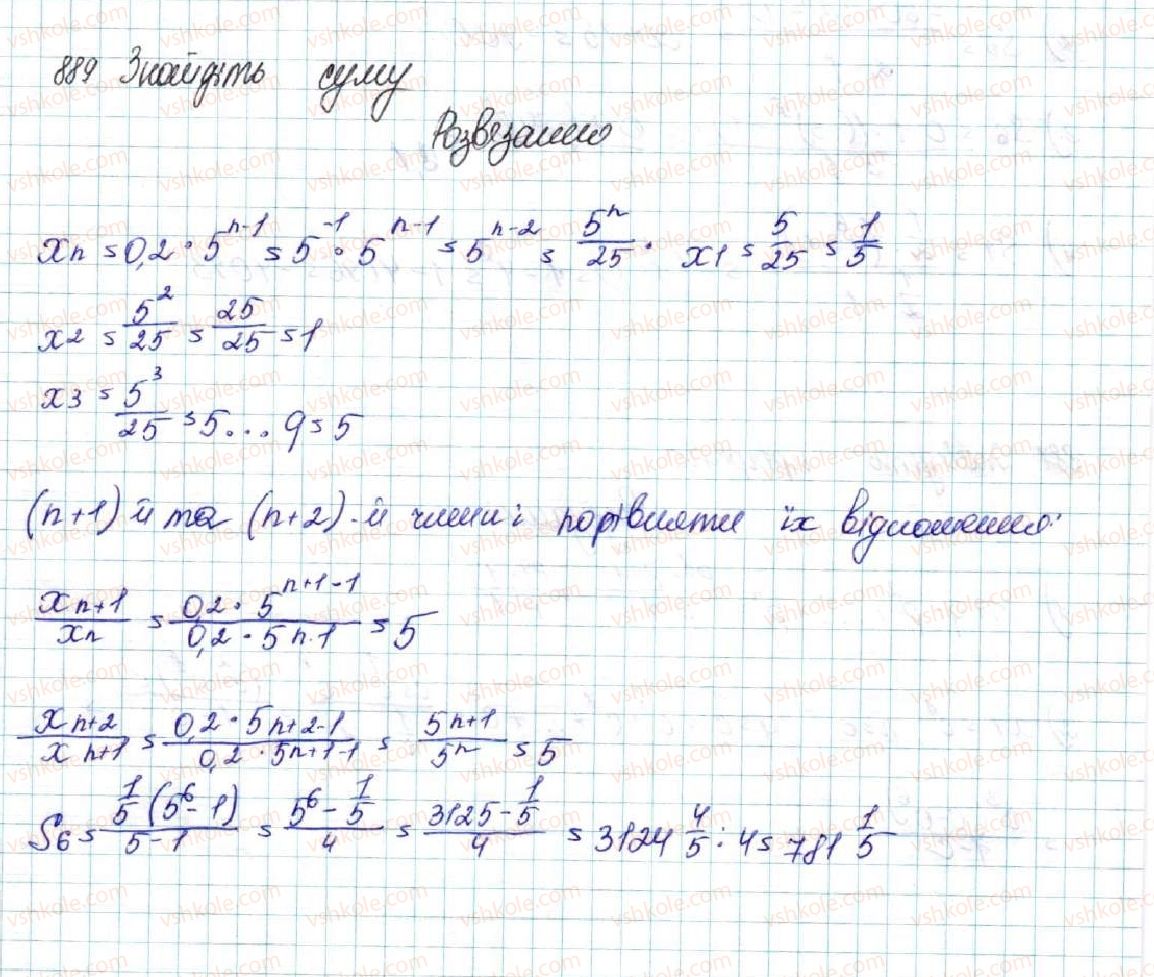 889 Знайдіть суму
Розвязання
xn = 0,2 · 5^{n-1} = 5^{-1} · 5^{n-1} = 5^{n-2} = 5^n/25. x1 = 5/25 = 1/5
x2 = 5^2/25 = 25/25 = 1
x3 = 5^3/25 = 5... q = 5
(n+1) й та (n+2)-й члени і порівняти їх відношення:
xn+1/xn = 0,2 · 5^{n+1-1}/0,2 · 5n-1 = 5
xn+2/xn+1 = 0,2 · 5n+2-1/0,2 · 5n+1-1 = 5^{n+1}/5^n = 5
S6 = 1/5(5^6-1)/5-1 = 5^6-1/5/4 = 3125-1/5/4 = 3124 4/5 : 4 = 781 1/5